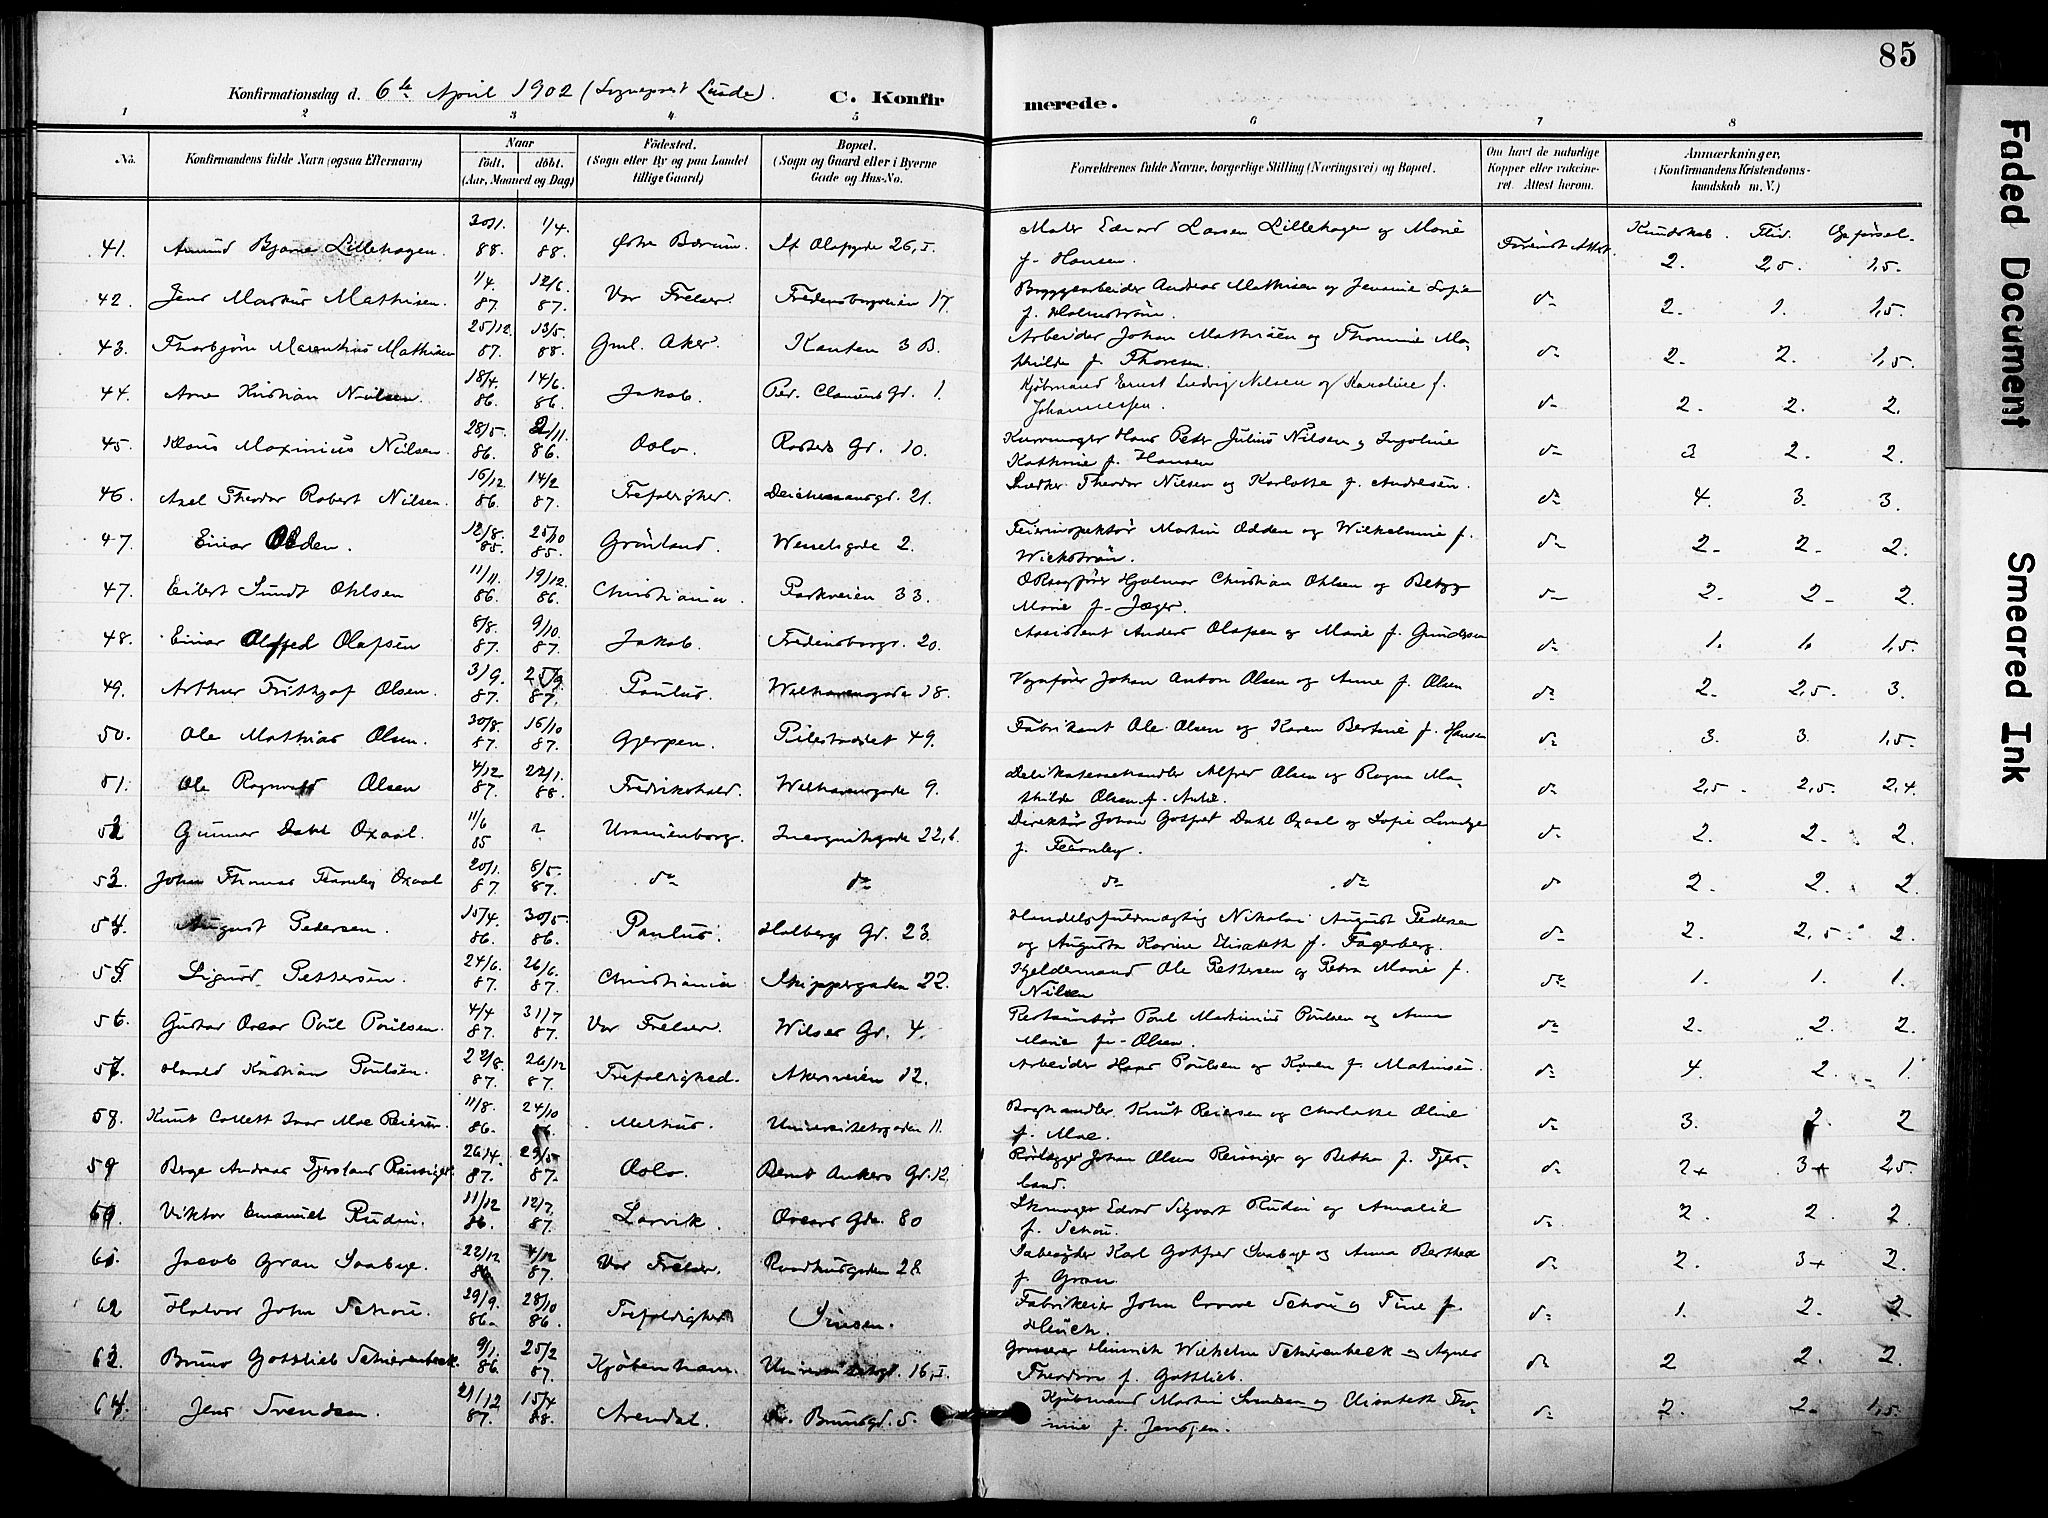 85
Konfirmationsdag d. 6te April 1902 (Sogneprest Lunde). C. Konfir merede.
1 2 3 4 5 6 7 8
No. Konfirmandens fulde Navn (ogsaa Efternavn) Naar født, døbt. (Aar, Maaned og Dag) Fødested. (Sogn eller By og paa Landet tillige Gaard) Bopæl. (Sogn og Gaard eller i Byerne Gade og Hus-No. Forældrenes fulde Navne, borgerlige Stilling (Næringsvei) og Bopæl. Om havt de naturlige Kopper eller vakcineret. Attest herom. Anmærkninger. (Konfirmandens Kristendomskundskab m. V.)
Kundskab. Flid. Opførsel.
41. Amund Bjarne Lillehagen. 30/1. 88. 1/4. 88. Østre Bærum. St Olafsgade 26, I. Maler Edvard Larsen Lillehagen og Marie f. Hansen. Forevist Attest. 2. 2,5. 1,5.
42. Jens Markus Mathisen. 1/4. 87. 12/6. 87. Vor Frelser. Fredensborgveien 17. Byggearbeider Andreas Mathisen og Jensine Sofie f. Holmstrøm. do 2. 1. 1,5.
43. Thorbjørn Marenthius Mathisen 25/12. 87. 13/5. 88. Gml. Aker. Kanten 3 B. Arbeider Johan Mathisen og Thomine Mathilde f. Thoresen. do 2. 2. 1,5.
44. Arne Kristian Nielsen. 18/4. 86. 14/6. 86. Jakob. Ped. Clausens Gr. 1. Kjøbmand Ernst Ludvig Nilsen og Karoline f. Johannessen. do 2. 2. 2.
45. Klaus Maximius Nilsen. 28/5. 86. 21/11. 86. Oslo. Rosteds Gr. 10. Kurvmager Hans Peter Julius Nilsen og Ingoline Kathrine f. Hansen do 3 2. 2.
46. Axel Theodor Robert Nilsen. 16/12. 86. 14/2 87. Trefoldighed. Deichmansgd. 21. Snedker Theodor Nilsen og Karlotte f. Andresen. do 4. 3. 3.
47. Einar Odden. 12/8. 85. 25/10 85. Grønland. Wesselsgade 2. Feierinspektør Martin Odden og Wilhelmine f. Wickstrøm. do 2. 2. 2.
47. Eilert Sundt Ohlsen 11/11. 86. 19/12. 86. Christiania. Parkveien 33. Hjalmar Christian Ohlsen og Betzy Marie f. Jæger. do 2. 2. 2.
48. Einar Olafsen 8/8. 87. 9/10. 87. Jakob. Fredensborgv. 20. Assistent Anders Olafsen og Marie f. Gundersen do 1. 1. 1,5.
49. Arthur Frithjof Olsen. 3/9. 87. 25/9. 87. Paulus. Welhavensgade 18. Vognfører Johan Anton Olsen og Anne f. Olsen do 2. 2,5. 3.
50. Ole Mathias Olsen. 30/8. 87. 16/10 87. Gjerpen. Pilestrædet 49. Fabrikant Ole Olsen og Karen Bertine f. Hansen do 3. 3. 1,5.
51. Ole Ragnvald Olsen 4/12 87. 22/1. 88. Fredrikshald. Welhavensgade 9. Delikatessehandler Alfred Olsen og Ragna Mathilde Olsen f. do 2,5. 2,5. 2,4.
52 Gunnar Dahl Oxaal. 11/6 85 Uranienborg. Incognitogade 22, Direktør Johan Gotfred Dahl Oxaal og Sofie f. Fearnley. do 2. 2. 2.
53. John Thomas Fearnley Oxaal 20/1. 87. 8/5. 87. do do do do do 2. 2. 2.
54. August Pedersen. 15/4. 86. 30/5. 86. Paulus. Holbergs Gr. 23. Handelsfuldmægtig Nikolai August Pedersen og Augusta Karine Elisabeth f. Fagerberg. do 2. 2,5. 2.
55. Sigurd Pettersen. 24/6. 87. 26/6. 87. Christiania. Skippergaden 22. Kjeldermand Ole Pettersen og Petra Marie f. Nilsen do 1. 1. 1.
56. Gustav Oscar Poul Poulsen. 4/4 87. 31/7 87. Vor Frelser. Wilses Gr. 4. Restauratør Poul Martinius Poulsen og Anna Marie f. Olsen. do 2. 2. 2.
57. Harald Kristian Poulsen. 22/8. 87. 26/12 87. Trefoldighed. Akersveien 12. Arbeider Hans Poulsen og Karen f. Matinsen. do 4. 2. 1.
58. Knut Collett Ivar Moe Reiersen. 11/8. 86. 24/10 Melhus. Universitetsgaden 11. Boghandler Knut Reiersen og Charlotte Oline f. Moe. do 3. 2. 2
59 Berge Andreas Tjersland Reisinger. 26/4. 87. 29/5 87. Oslo. Bernt Ankers Gr. 12. Rørlægger Johan Olsen Reisinger og Bertha f. Tjersland. do 2+ 3+ 2,5.
60. Viktor Emanuel Rudin. 11/12 86. 12/7. 87. Larvik. Oscars Gde. 80 Skomager Edvard Sigvart Rudin og Amalie f. Schou. do 2. 2. 2.
61. Jacob Gran Saabye. 22/12 86 4/12 87. Vor Frelser. Raadhusgaden 28. Karl Gotfred Saabye og Anna Berthea f. Gran do 2. 3+ 2.
62 Halvor John Schou. 29/9. 86. 28/10 86. Trefoldighed Sinsen. Fabrikeier John Crowe Schou og Tine f. Heuch. do 1. 2. 2
63. Bruno Gottlieb Schierenbeck. 9/1. 86 25/2 87. Kjøbenhavn. Universitetsgd. 16, I. Grosserer Hinrich Wilhelm Schierenbeck og Agnes Theodora f. Gottlieb. do 2 2. 2.
64. Jens Svendsen. 21/12 87. 15/4 88. Arendal. Kr. Brunsgd. 5. Kjøbmand Martin Svendsen og Elisabeth Thomine f. Jenssen. do 2. 2. 1,5.
Faded Document
Smeared Ink